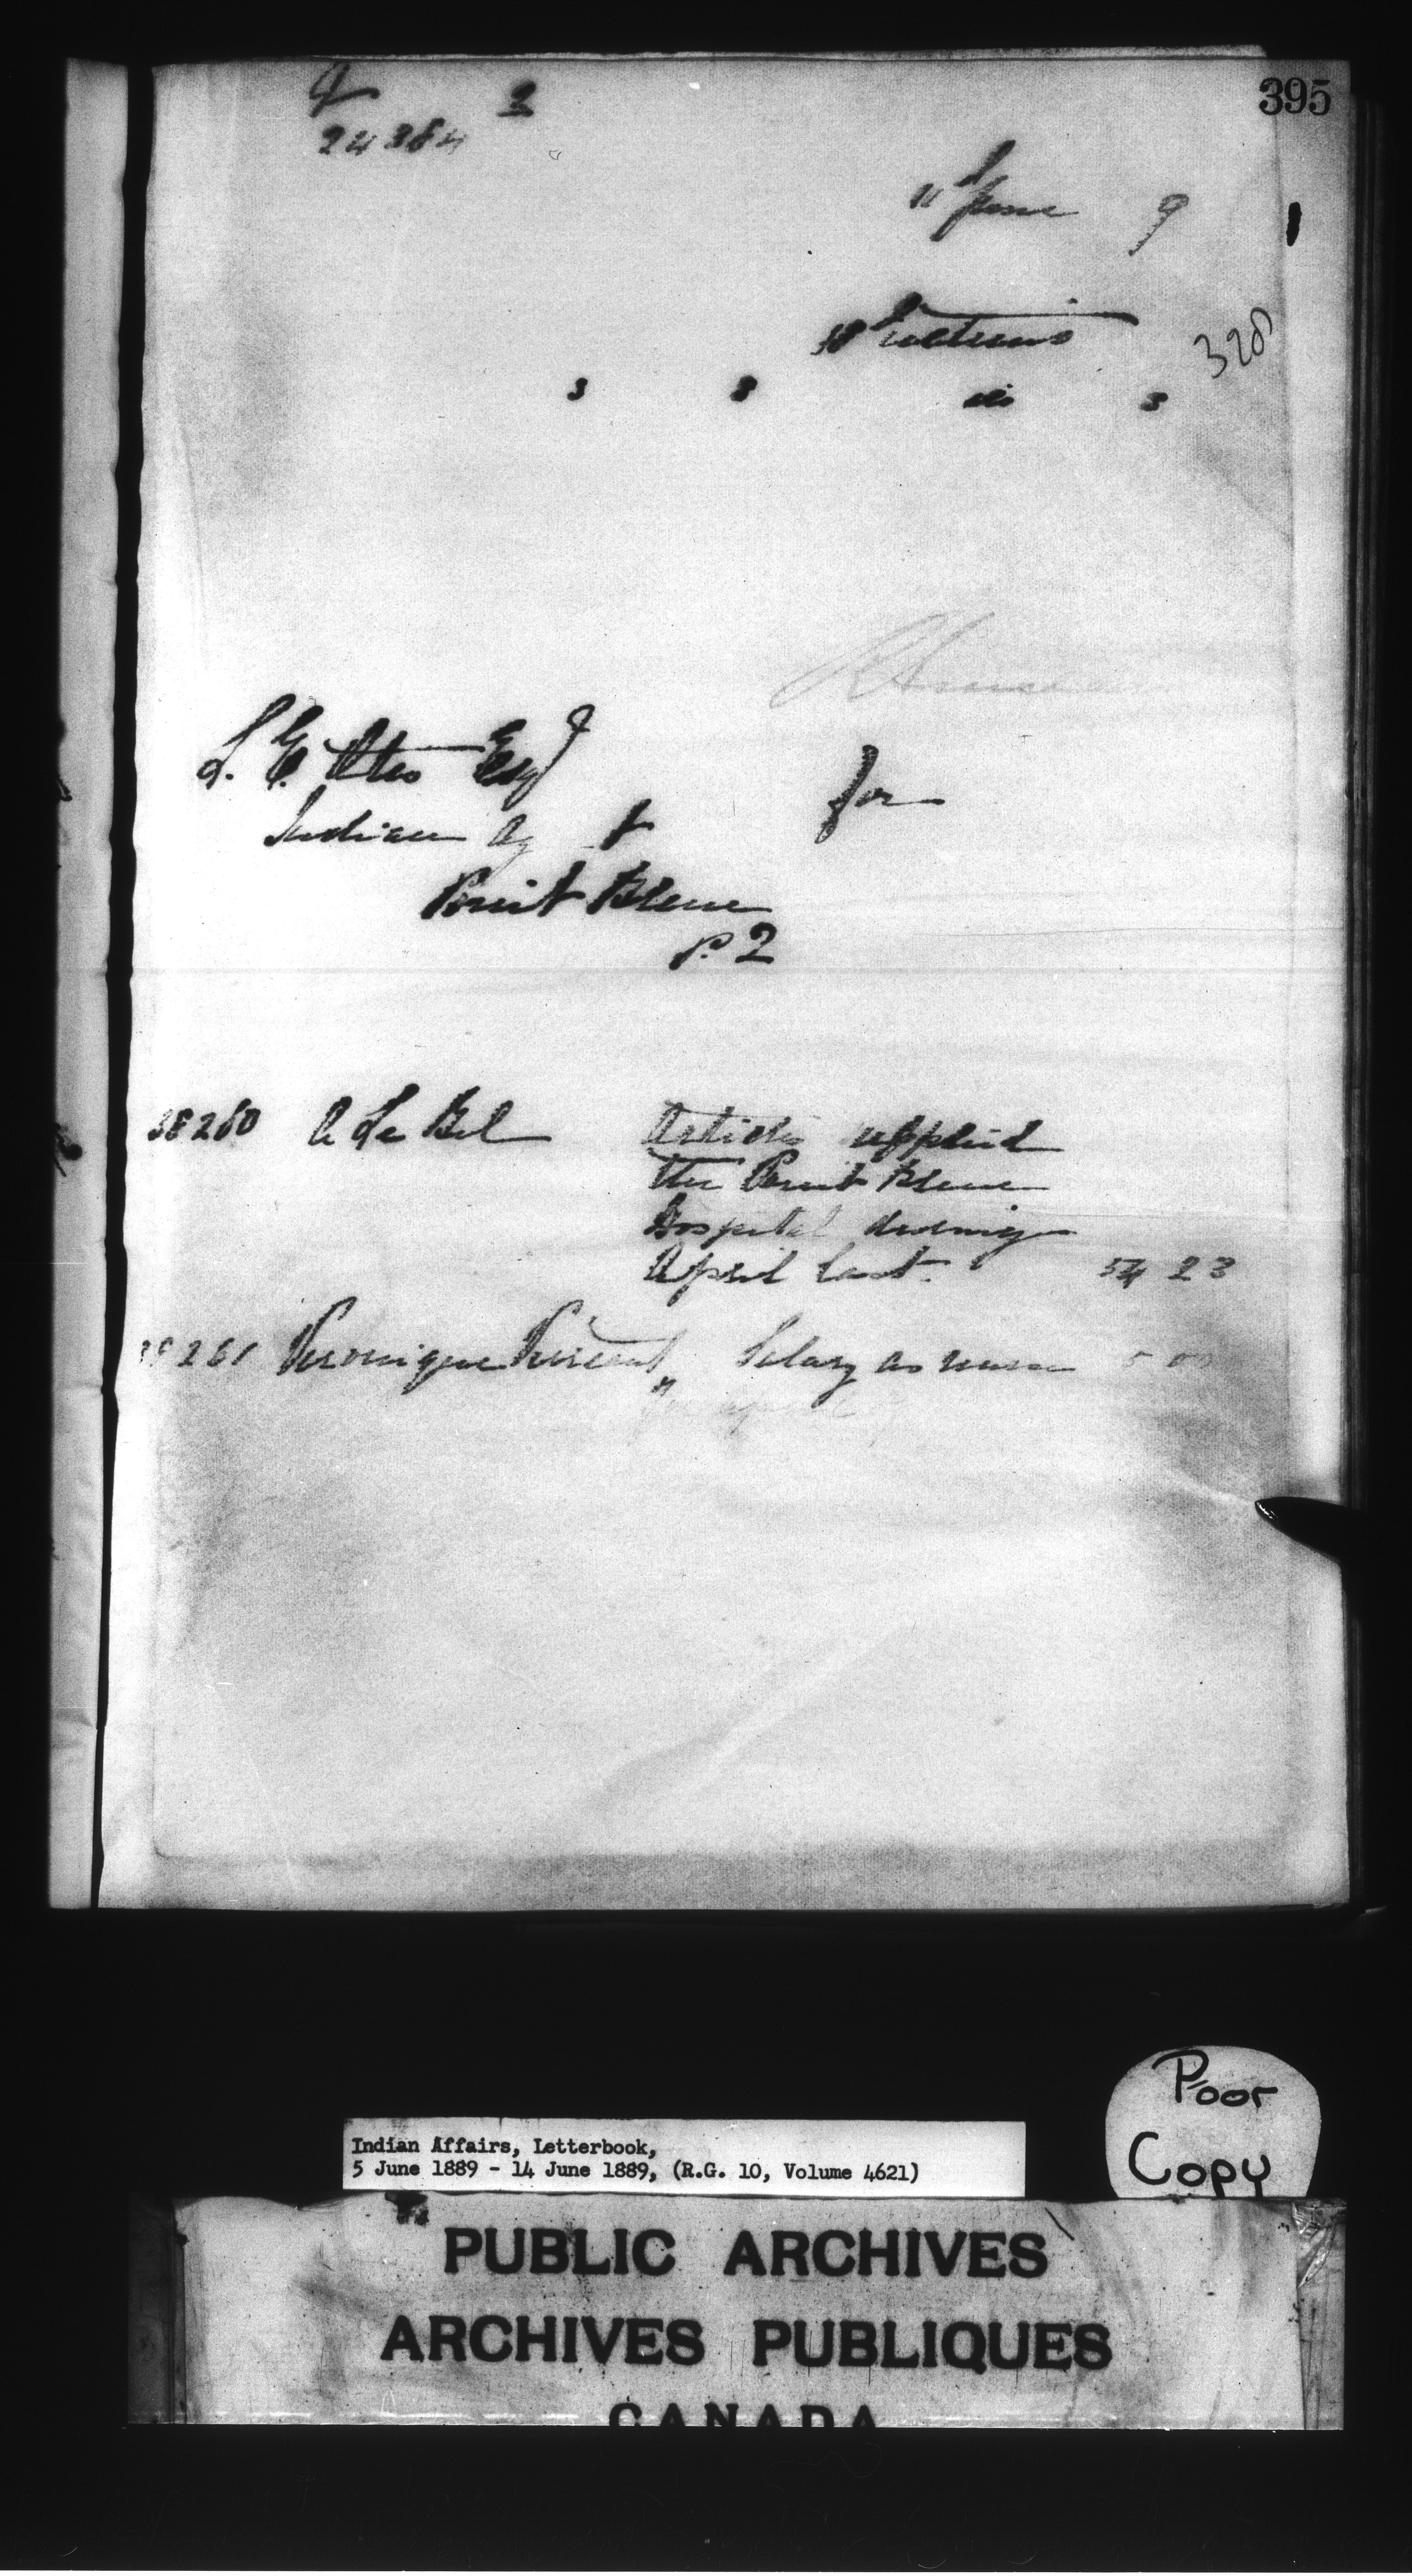 395
24384 3
11 June 9
328
3 8 3
L. E. Otis Esq
Indian Ag t
for
Point Bleue
P. 2
38260 A Le Bel Articles upplied
the Point Bleue
Hospital during
April last. 54 23
38261 Veronique Vincent „ Salary as nurse 5 00
Poor
Copy
Indian Affairs, Letterbook,
5 June 1889 - 14 June 1889, (R.G. 10, Volume 4621)
PUBLIC ARCHIVES
ARCHIVES PUBLIQUES
CANADA